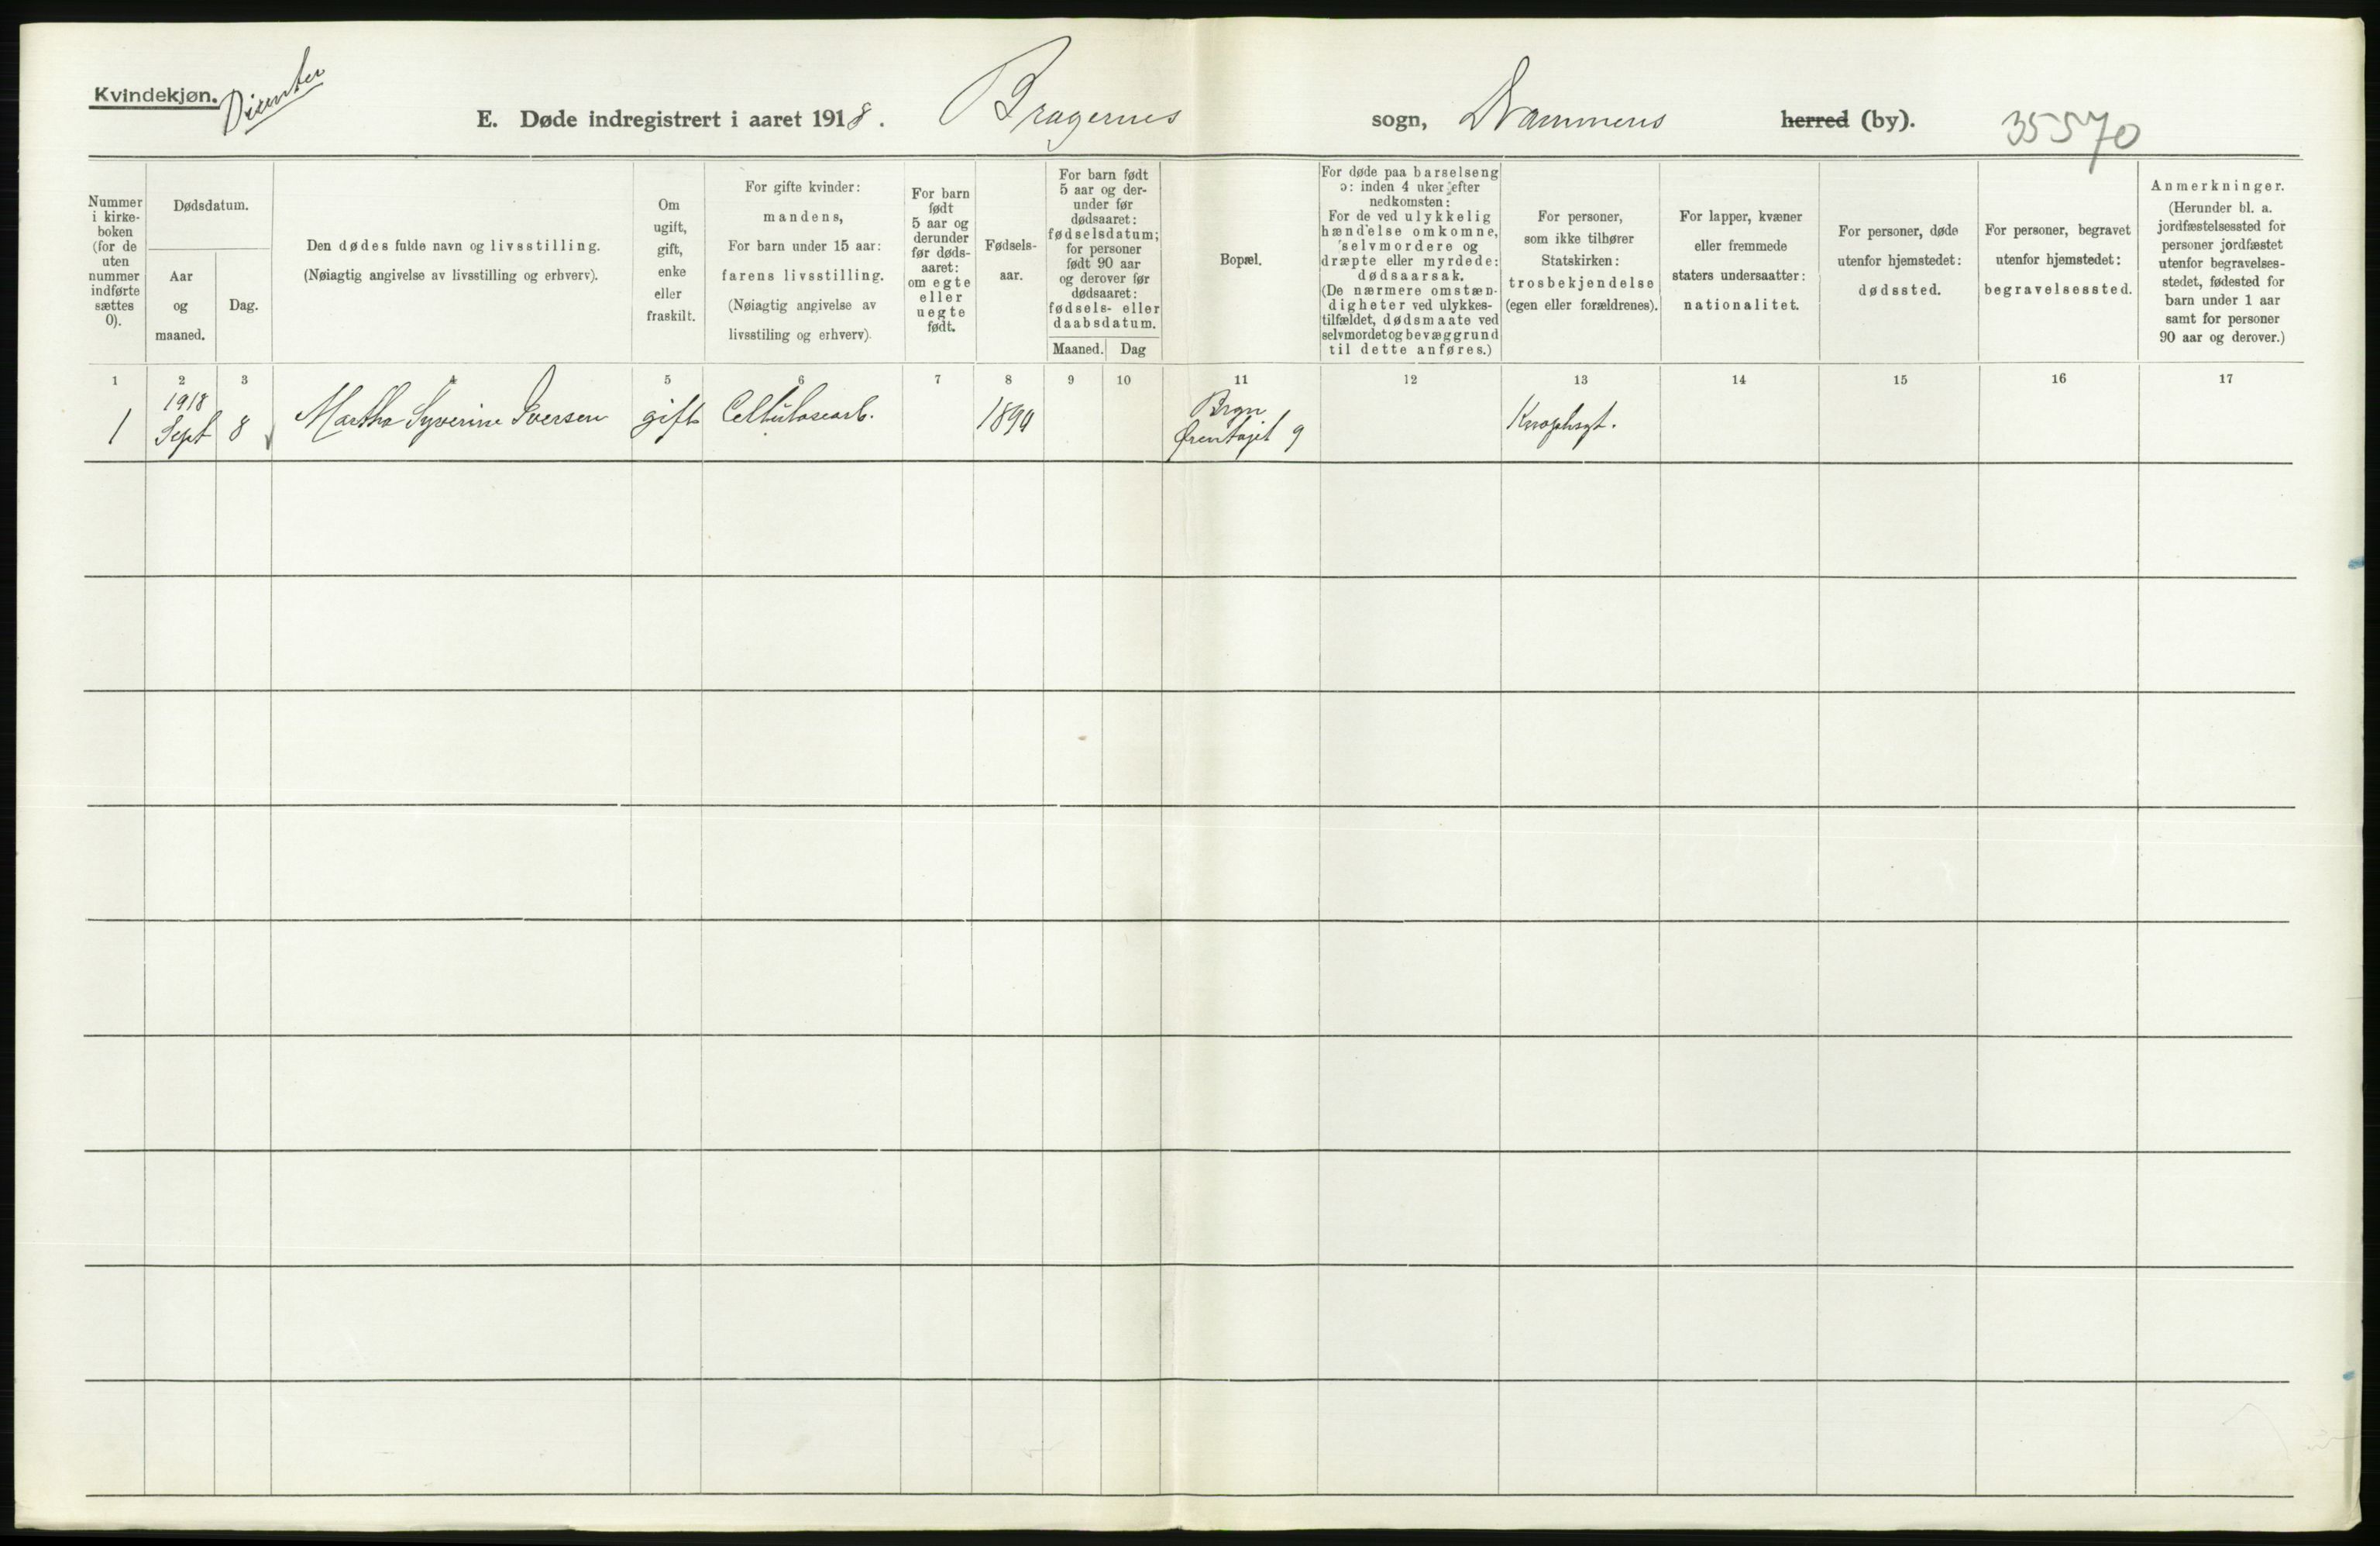 Kvindekjøn.
E. Døde indregistrert i aaret 1918. Bragernes sogn, Drammens herred (by). 35570
Nummer i kirke-boken (for de uten nummer indførte sættes 0).
Dødsdatum.
Aar og maaned.
Dag.
Den dødes fulde navn og livsstilling.
(Nøiagtig angivelse av livsstilling og erhverv).
Om ugift, gift, enke eller fraskilt.
For gifte kvinder:
mandens,
For barn under 15 aar:
farens livsstilling.
(Nøiagtig angivelse av
livsstiling og erhverv).
For barn født 5 aar og derunder før døds-aaret: om egte eller uegte født.
Fødsels-aar.
For barn født 5 aar og der-under før dødsaaret: fødselsdatum; for personer født 90 aar og derover før dødsaaret: fødsels- eller daabsdatum.
Maaned. Dag
Bopæl.
For døde paa barselseng
ɔ: inden 4 uker efter
nedkomsten:
For de ved ulykkelig
hændelse omkomne,
selvmordere og
dræpte eller myrdede:
dødsaarsak.
(De nærmere omstæn-
digheter ved ulykkes-
tilfældet, dødsmaate ved
selvmordet og bevæggrund
til dette anføres.)
For personer,
som ikke tilhører
Statskirken:
trosbekjendelse
(egen eller forældrenes).
For lapper, kvæner
eller fremmede
staters undersaatter:
nationalitet.
For personer, døde
utenfor hjemstedet:
dødssted.
For personer, begravet
utenfor hjemstedet:
begravelsessted.
Anmerkninger.
(Herunder bl. a.
jordfæstelsessted for
personer jordfæstet
utenfor begravelses-
stedet, fødested for
barn under 1 aar
samt for personer
90 aar og derover.)
1 2 3 4 5 6 7 8 9 10 11 12 13 14 15 16 17
1 1918 Sept 8 Martha Syverine Iversen gift Cellulosearb. 1894 9